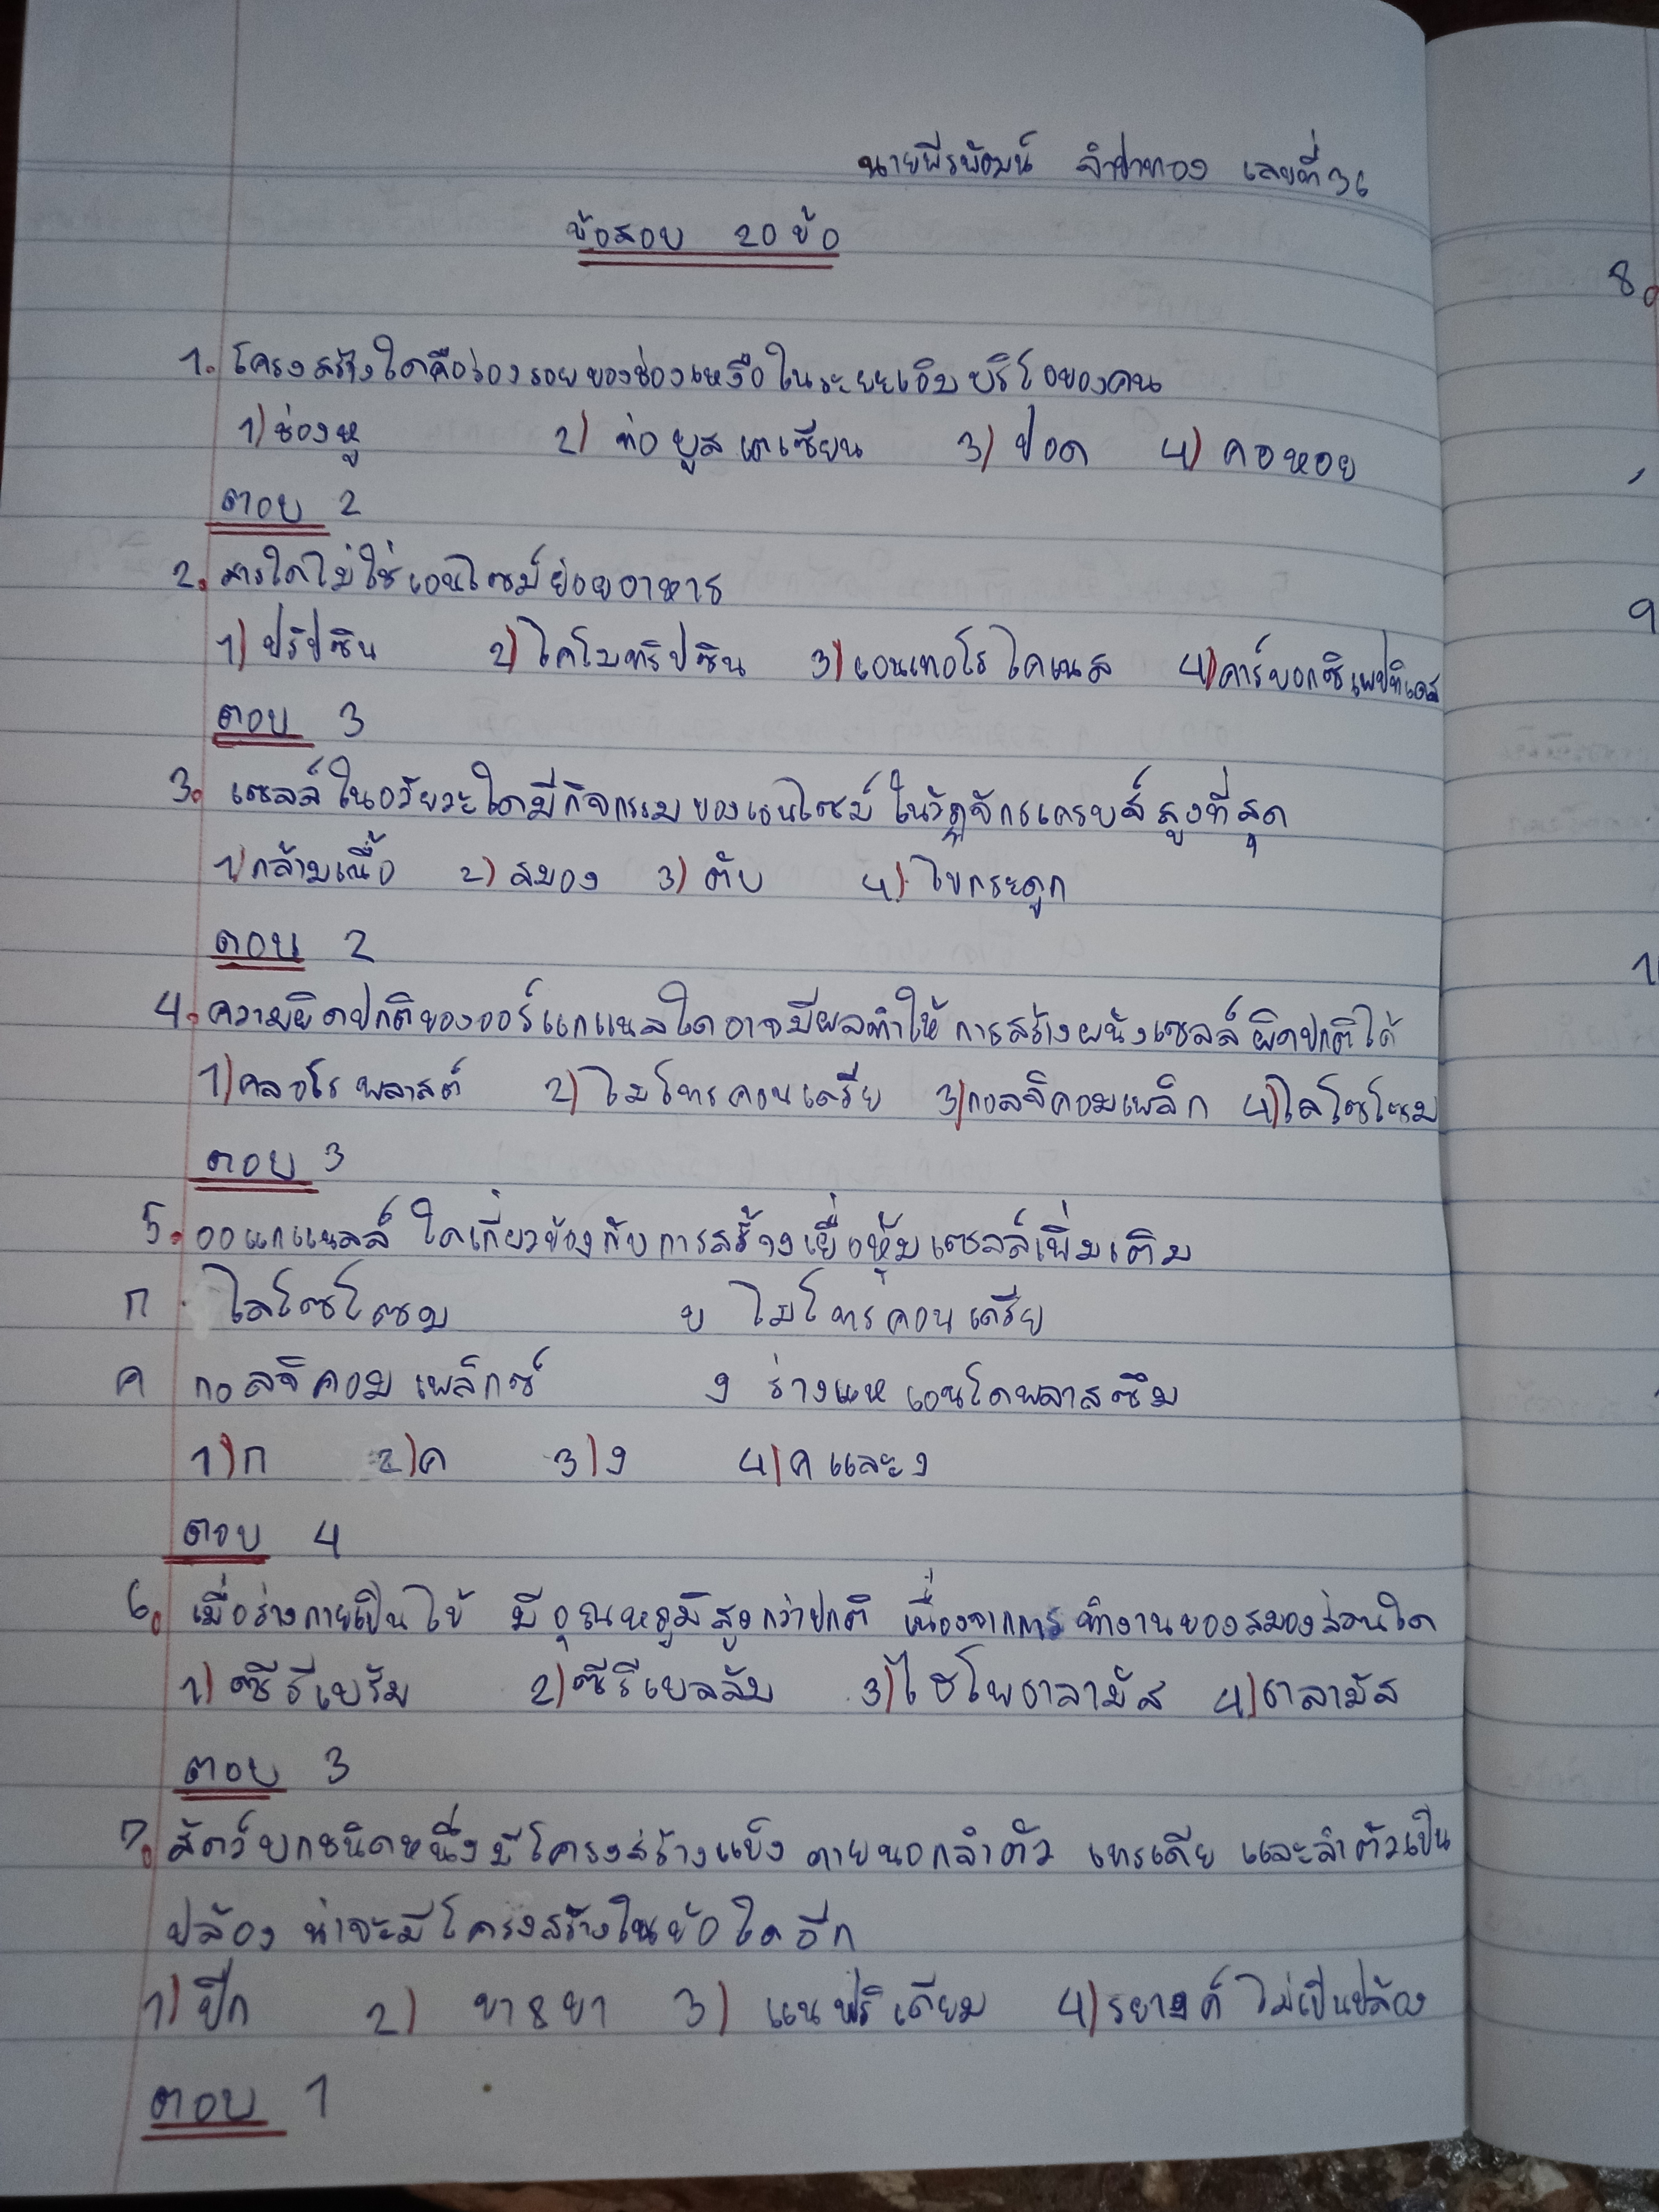 นายพีรพัฒน์ จำปาทอง เลขที่ 36
ข้อสอบ 20 ข้อ
1. โครงสร้างใดคือร่องรอยของช่องเหงือในระยะเอ็มบริโอของคน
1) ช่องหู 2) ท่อยูสเตเชียน 3) ปอด 4) คอหอย
ตอบ 2
2. สารใดไม่ใช่เอนไซม์ย่อยอาหาร
1) ปริปซิน 2) ไคโมทริปซิน 3) เอนเทอโรไคเนส 4) คาร์บอกซิเพปทิเดส
ตอบ 3
3. เซลล์ในอวัยวะใดมีกิจกรรมของเอนไซม์ในวัฏจักรเครบส์สูงที่สุด
1) กล้ามเนื้อ 2) สมอง 3) ตับ 4) ไขกระดูก
ตอบ 2
4. ความผิดปกติของออร์แกแนลใดอาจมีผลทำให้การสร้างผนังเซลล์ผิดปกติได้
1) คลอโรพลาสต์ 2) ไมโทรคอนเดรีย 3) กอลจิคอมเพลิก 4) ไลโซโซม
ตอบ 3
5. ออแกแนลล์ใดเกี่ยวข้องกับการสร้างเยื่อหุ้มเซลล์เพิ่มเติม
ก ไลโซโซม ข ไมโทรคอนเดรีย
ค กอลจิคอมเพล็กซ์ ง ร่างแหเอนโดพลาสซึม
1) ก 2) ค 3) ง 4) ค และ ง
ตอบ 4
6. เมื่อร่างกายเป็นไข้ มีอุณหภูมิสูงกว่าปกติ เนื่องจากการทำงานของสมองส่วนใด
1) ซีรีเบรัม 2) ซีรีเบลลัม 3) ไฮโพธาลามัส 4) ธาลามัส
ตอบ 3
7. สัตว์บกชนิดหนึ่งมีโครงสร้างแข็งภายนอกลำตัว เทรเคีย และลำตัวเป็น
ปล้อง น่าจะมีโครงสร้างในข้อใดอีก
1) ปีก 2) ขา 8 ขา 3) เนฟริเดียม 4) รยางค์ไม่เป็นปล้อง
ตอบ 1
8.
9
1